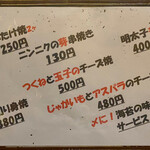 たけ焼2ヶ
250円
ニンニクの芽串焼き
130円
明太子
400
つくねと玉子のチーズ焼
500円
じゃがいもとアスパラのチーズ
480円
り串焼
380円
〆に!海苔の味
サービス